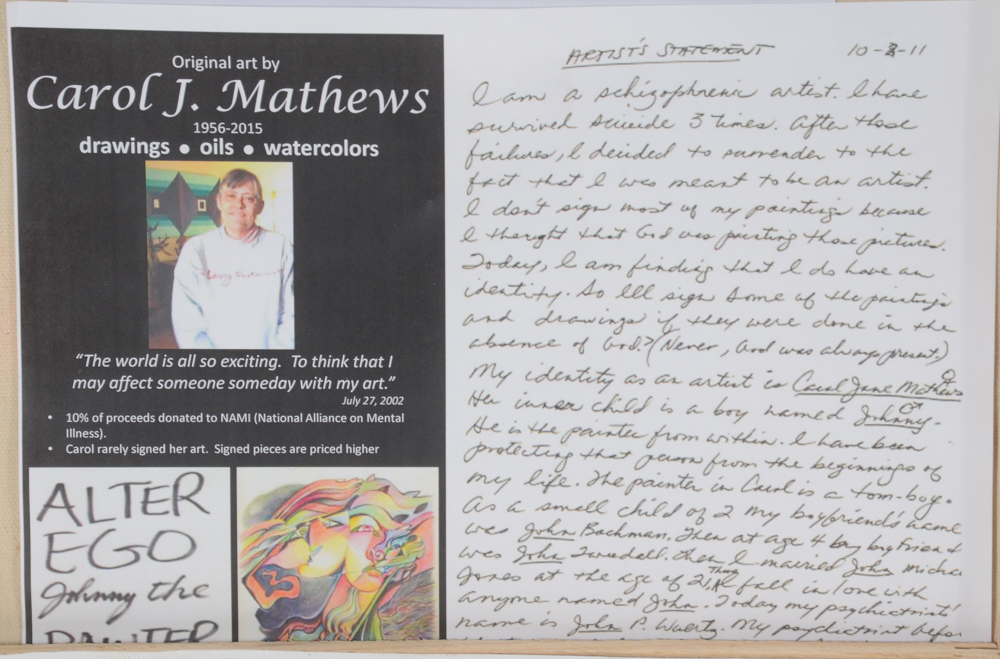 Original art by
Carol J. Mathews
1956-2015
drawings • oils • watercolors
"The world is all so exciting. To think that I
may affect someone someday with my art."
July 27, 2002
• 10% of proceeds donated to NAMI (National Alliance on Mental
Illness).
• Carol rarely signed her art. Signed pieces are priced higher
ALTER
EGO
Johnny the
PAINTER
ARTIST'S STATEMENT 10-2-11
I am a schizophrenic artist. I have
survived suicide 3 times. After those
failures, I decided to surrender to the
fact that I was meant to be an artist.
I don't sign most of my paintings because
I thought that God was painting those pictures.
Today, I am finding that I do have an
identity. So I'll sign some of the paintings
and drawings if they were done in the
absence of God.? (Never, God was always present.)
My identity as an artist is Carol Jane Mathews ♀
Her inner child is a boy named Johnny ♂.
He is the painter from within. I have been
protecting that person from the beginnings of
my life. The painter in Carol is a tom-boy.
As a small child of 2 my boyfriend's name
was John Bachman. Then at age 4 my boyfriend
was John Tweedall. then I married John Micha
Jones at the age of 21. Then I fall in love with
anyone named John. Today my psychiatrist'
name is John P. My psychiatrist befor